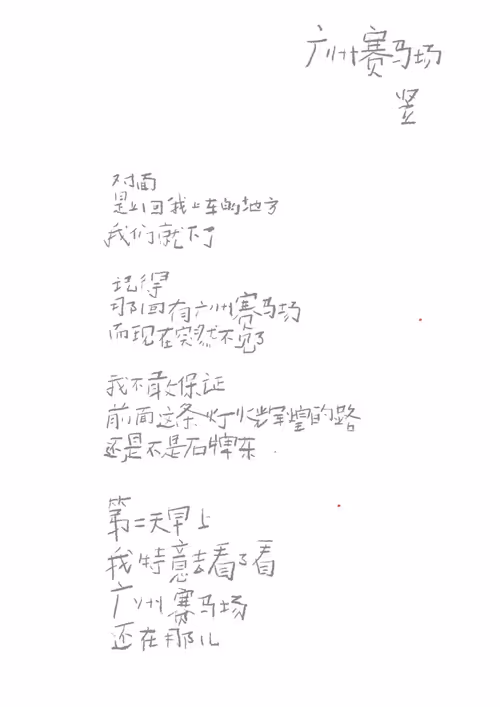 广州赛马场
竖
对面
是上回我上车的地方
我们就下了
记得
那回有广州赛马场
而现在突然不见了
我不敢保证
前面这条灯火辉煌的路
还是不是石牌东
第二天早上
我特意去看了看
广州赛马场
还在那儿